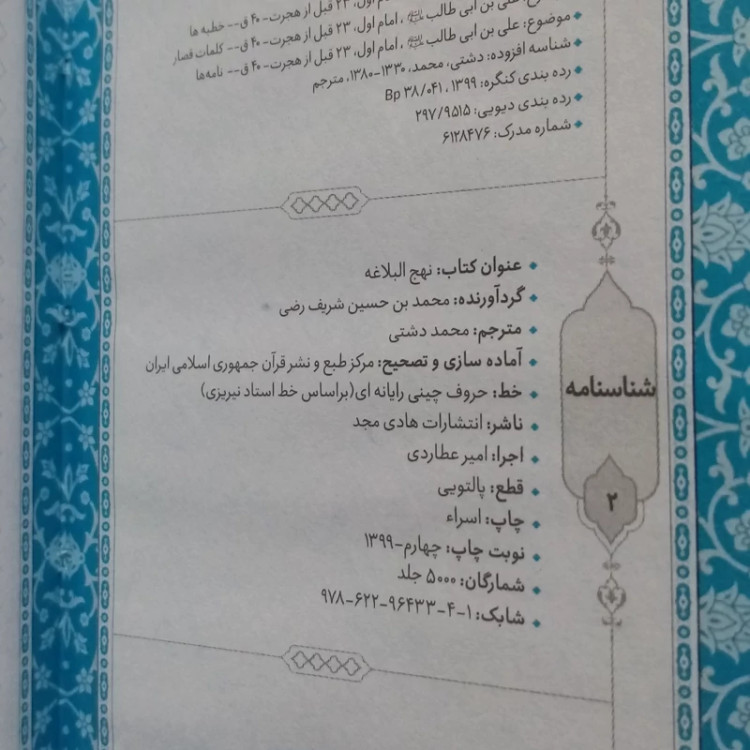 موضوع: علی بن ابی طالب ﷷ، امام اول، ۲۳ قبل از هجرت- ۴۰ ق-- خطبه ها
موضوع: علی بن ابی طالب، امام اول، ۲۳ قبل از هجرت- ۴۰ ق-- کلمات قصار
، امام اول، ۲۳ قبل از هجرت- ۴۰ ق-- نامه‌ها
شناسه افزوده: دشتی، محمد، ۱۳۳۰-۱۳۸۰، مترجم
رده بندی کنگره: ۱۳۹۹ ،۰۴۱/ Bp ۳۸
رده بندی دیویی: ۲۹۷/۹۵۱۵
شماره مدرک: ۶۱۲۸۴۷۶
عنوان کتاب: نهج البلاغه
گردآورنده: محمد بن حسین شریف رضی
مترجم: محمد دشتی
آماده سازی و تصحیح: مرکز طبع و نشر قرآن جمهوری اسلامی ایران
خط: حروف چینی رایانه ای(براساس خط استاد نیریزی)
ناشر: انتشارات هادی مجد
اجرا: امیر عطاردی
قطع: پالتویی
چاپ: اسراء
نوبت چاپ: چهارم-۱۳۹۹
شمارگان: ۵۰۰۰ جلد
شابک: ۱-۴-۹۶۴۳۳-۶۲۲-۹۷۸
شناسنامه
۲